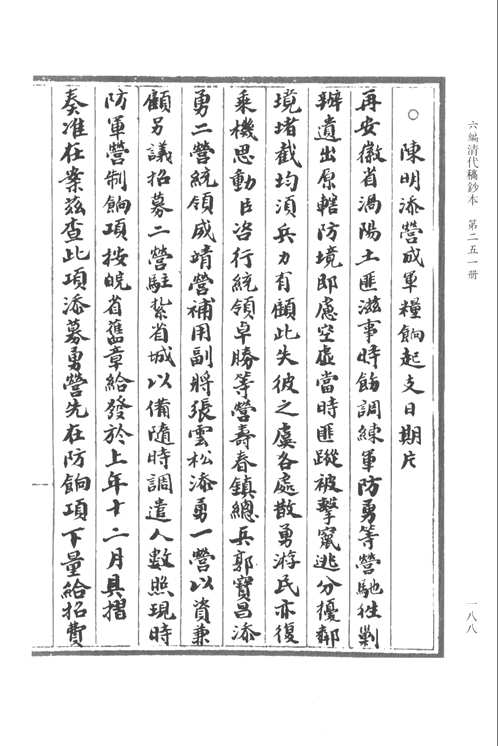 六編清代稿鈔本　第二五一册
一八八
○　陳明添營成軍糧餉起支日期片
再安徽省渦陽土匪滋事時飭調練軍防勇等營馳往剿
辦遺出原轄防境即慮空虛當時匪蹤被擊竄逃分擾鄰
境堵截均須兵力有顧此失彼之虞各處散勇游民亦復
乘機思動臣咨行統領卓勝等營壽春鎮總兵郭寶昌添
勇二營統領成靖營補用副將張雲松添勇一營以資兼
顧另議招募二營駐紮省城以備隨時調遣人數照現時
防軍營制餉項按皖省舊章給發於上年十二月具摺
奏准在案茲查此項添募勇營先在防餉項下量給招費
一